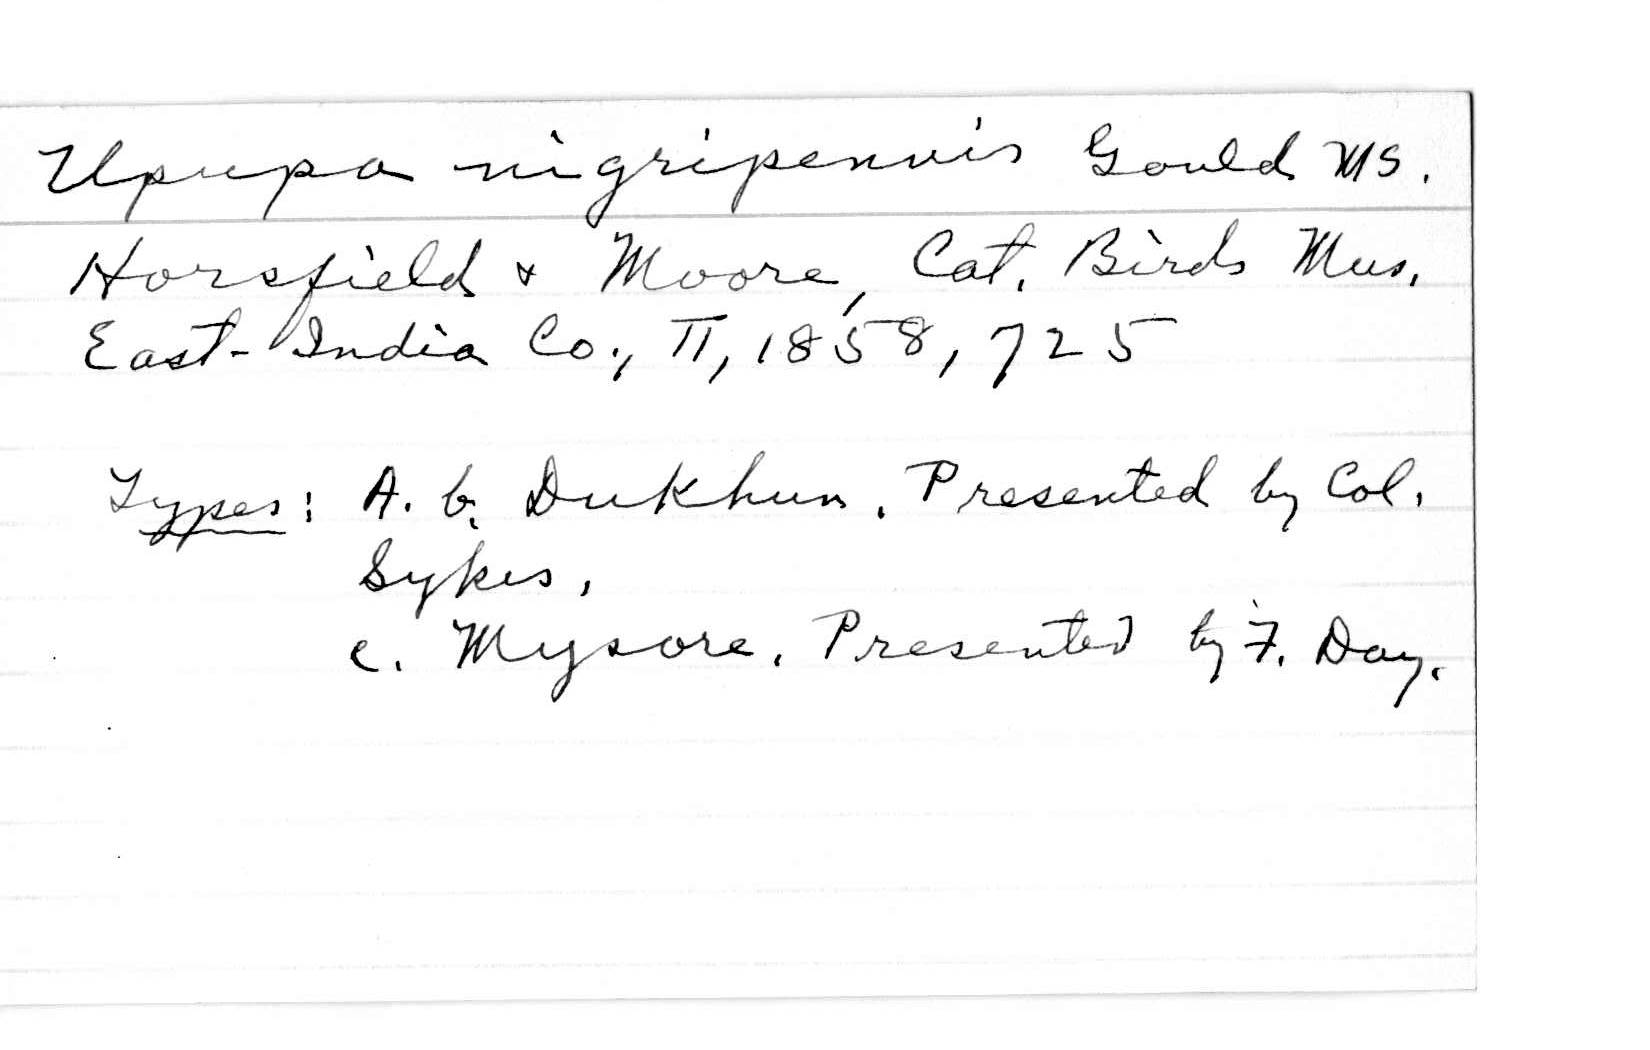 Upupa nigripennis Gould MS.
Horsfield & Moore, Cat. Birds Mus.
East-India Co., II, 1858, 725
Types: A. b. Dukhun. Presented by Col.
Sykes.
c. Mysore. Presented by F. Day.